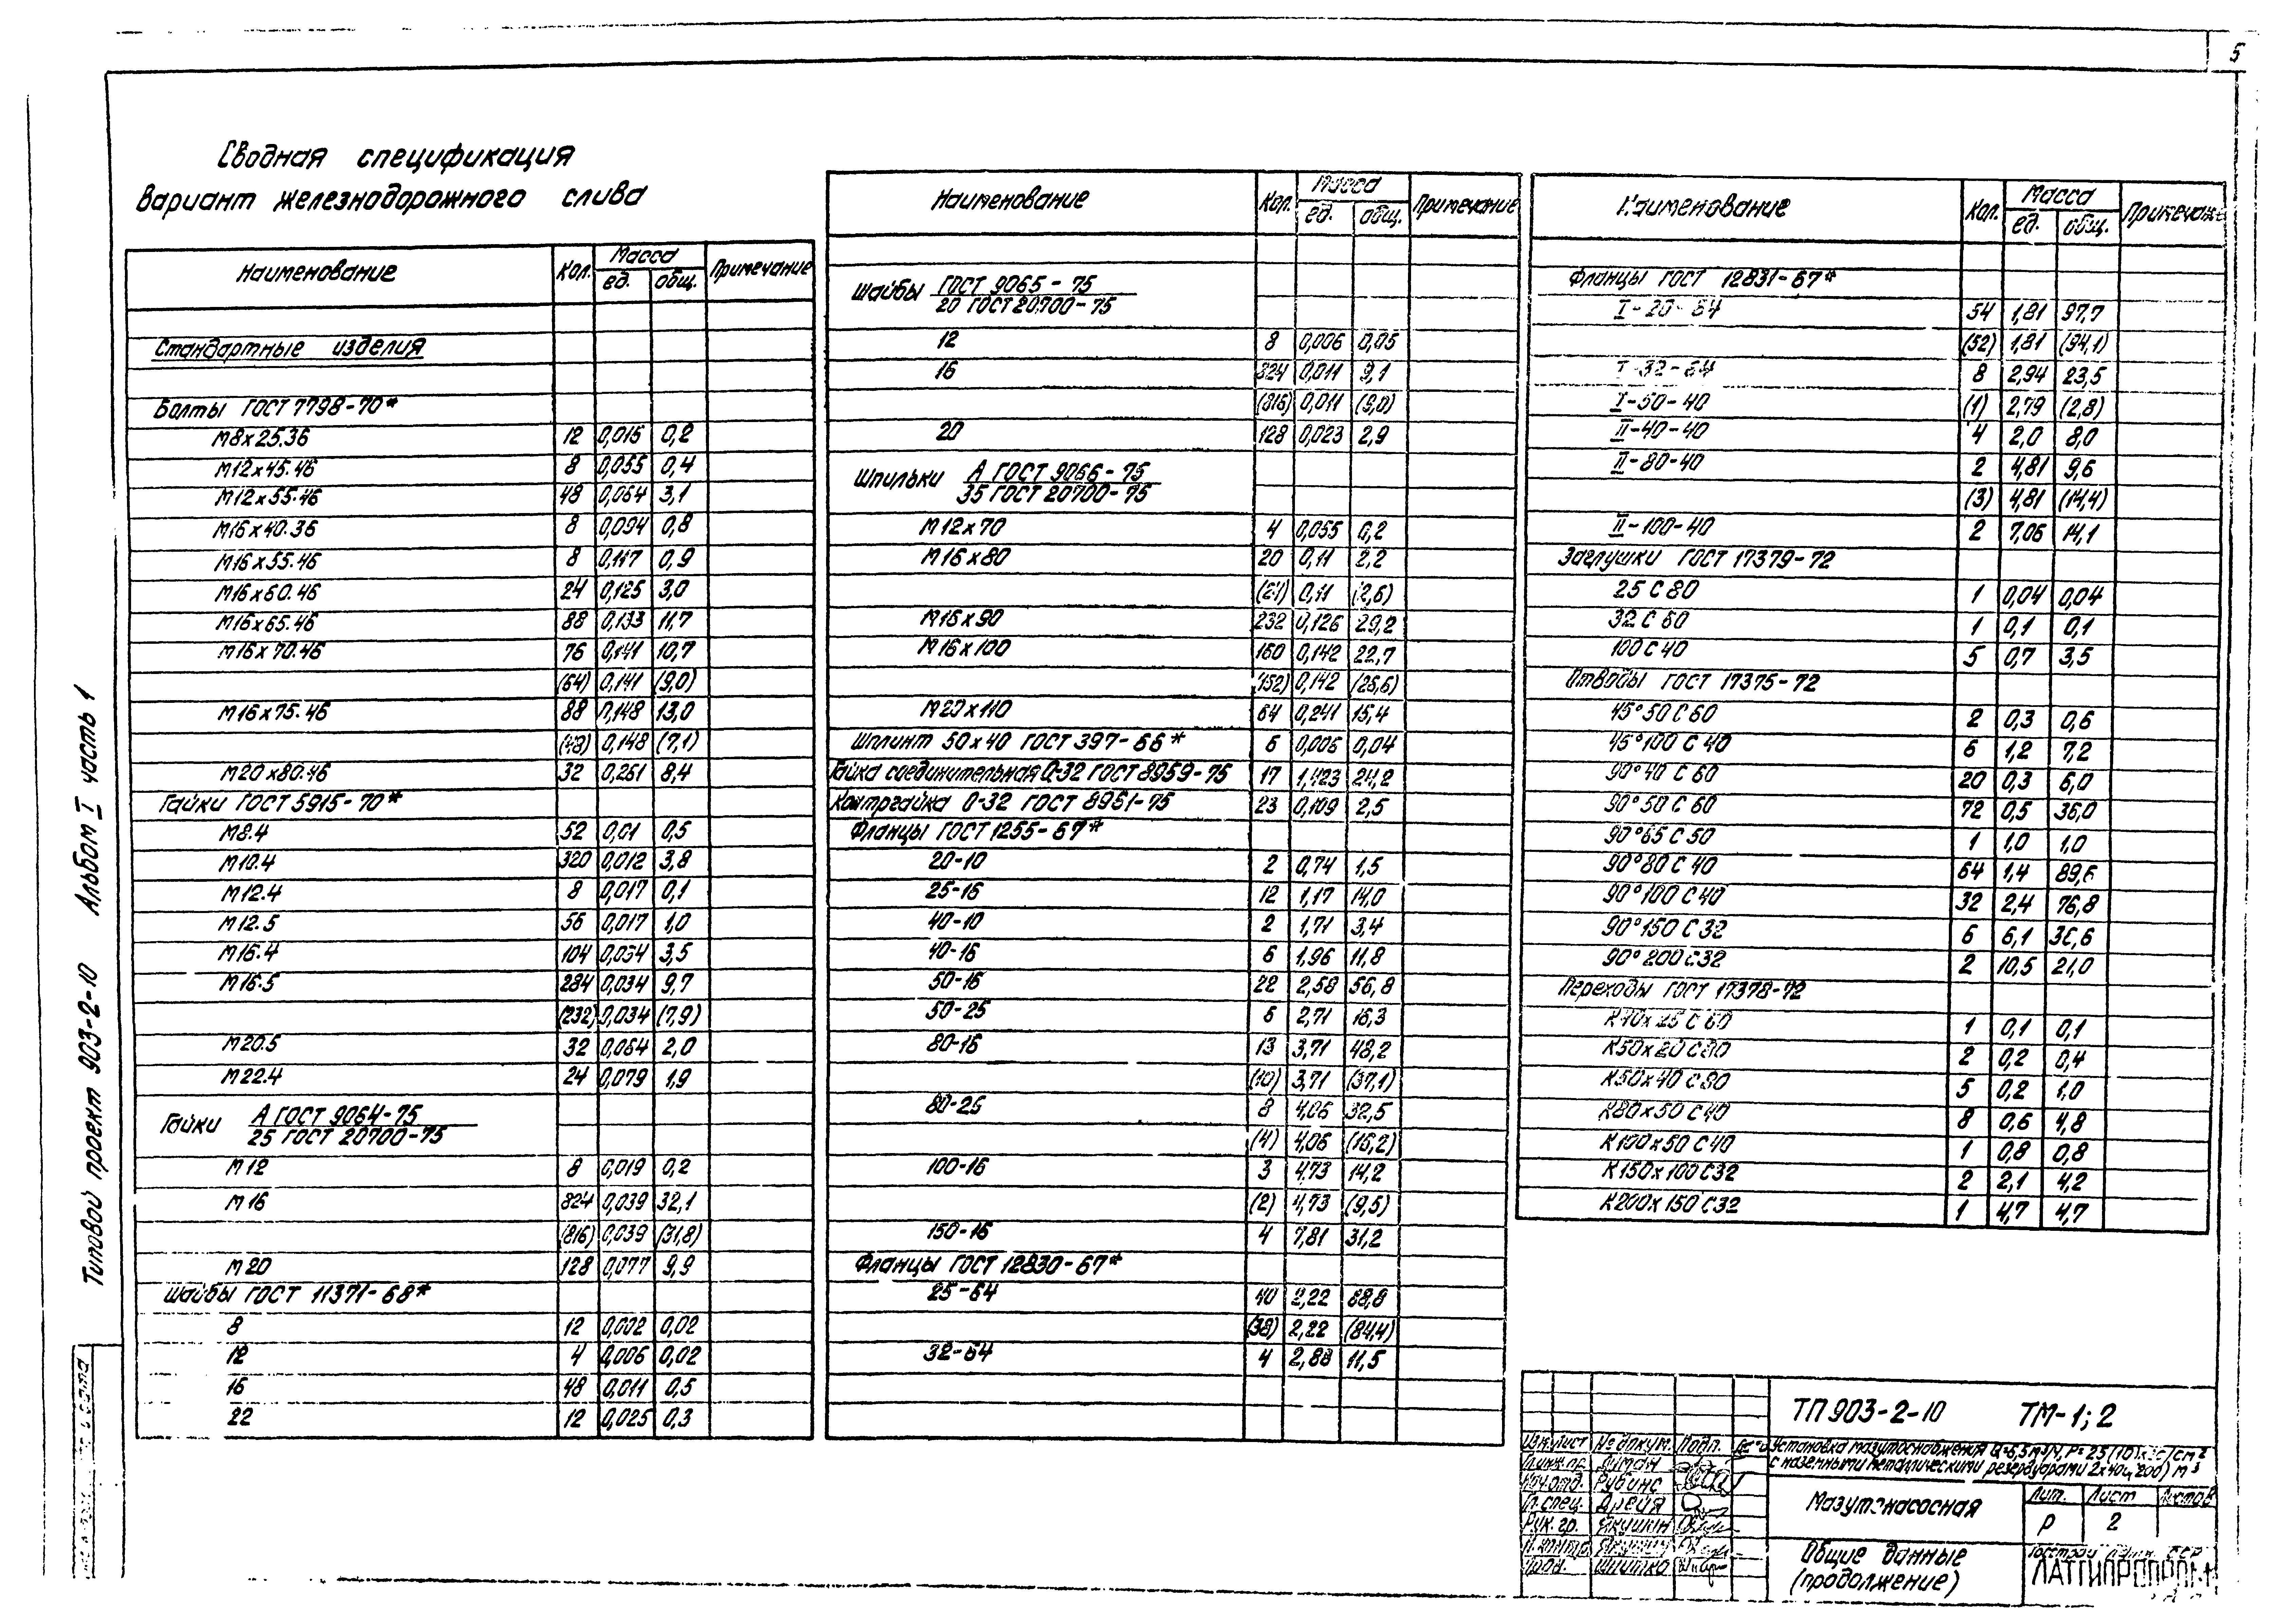 5
Сводная спецификация
Вариант железнодорожного слива
Наименование Кол. Масса ед. общ. Примечание
Стандартные изделия
Болты ГОСТ 7798-70*
М8х25.36 12 0,015 0,2
М12х45.46 8 0,055 0,4
М12х55.46 48 0,064 3,1
М16х40.36 8 0,094 0,8
М16х55.46 8 0,117 0,9
М16х60.46 24 0,125 3,0
М16х65.46 88 0,133 11,7
М16х70.46 76 0,141 10,7
(64) 0,141 (9,0)
М16х75.46 88 0,148 13,0
(48) 0,148 (7,1)
М20х80.46 32 0,261 8,4
Гайки ГОСТ 5915-70*
М8.4 52 0,01 0,5
М10.4 320 0,012 3,8
М12.4 8 0,017 0,1
М12.5 56 0,017 1,0
М16.4 104 0,034 3,5
М16.5 284 0,034 9,7
(232) 0,034 (7,9)
М20.5 32 0,064 2,0
М22.4 24 0,079 1,9
Гайки А ГОСТ 9064-75
25 ГОСТ 20700-75
М12 8 0,019 0,2
М16 824 0,039 32,1
(816) 0,039 (31,8)
М20 128 0,077 9,9
Шайбы ГОСТ 11371-68*
8 12 0,002 0,02
12 4 0,006 0,02
16 48 0,011 0,5
22 12 0,025 0,3
Наименование Кол. Масса ед. общ. Примечание
Шайбы ГОСТ 9065-75
20 ГОСТ 20700-75
12 8 0,006 0,05
16 824 0,011 9,1
(816) 0,011 (9,0)
20 128 0,023 2,9
Шпильки А ГОСТ 9066-75
35 ГОСТ 20700-75
М12х70 4 0,055 0,2
М16х80 20 0,11 2,2
0,11 (2,6)
М16х90 232 0,126 29,2
М16х100 160 0,142 22,7
(152) 0,142
М20х110 64 0,241 15,4
Шплинт 50х40 ГОСТ 397-66* 6 0,006 0,04
Гайка соединительная 0-32 ГОСТ 8959-75 17 1,423 24,2
Контргайка 0-32 ГОСТ 8961-75 23 0,109 2,5
Фланцы ГОСТ 1255-67*
20-10 2 0,74 1,5
25-16 12 1,17 14,0
40-10 2 1,71 3,4
40-16 6 1,96 11,8
50-16 22 2,58 56,8
50-25 6 2,71 16,3
80-16 13 3,71 48,2
(10) 3,71 (37,1)
80-25 8 4,06 32,5
(4) 4,06 (16,2)
100-16 3 4.73 14,2
(2) 4,73 (9,5)
150-16 4 7,81 31,2
Фланцы ГОСТ 12830-67*
25-64 40 2,22 88,8
(38) 2,22 (84,4)
32-64 4 2,88 11,5
Наименование Кол. Масса ед. общ. Примечание
Фланцы ГОСТ 12831-67*
I-20-64 54 1,81 97,7
(52) 1,81 (94,1)
I-32-64 8 2,94 23,5
I-50-40 (1) 2,79 (2,8)
II-40-40 4 2,0 8,0
II-80-40 2 4,81 9,6
(3) 4,81 (14,4)
II-100-40 2 7,06 14,1
Заглушки ГОСТ 17379-72
25 С 80 1 0,04 0,04
32 С 60 1 0,1 0,1
100 С 40 5 0,7 3,5
Отводы ГОСТ 17375-72
45° 50 С 60 2 0,3 0,6
45° 100 С 40 6 1,2 7,2
90° 40 С 60 20 0,3 6,0
90° 50 С 60 72 0,5 36,0
90° 65 С 50 1 1,0 1,0
90° 80 С 40 64 1,4 89,6
90° 100 С 40 32 2,4 76,8
90° 150 С 32 6 6,1 36,6
90° 200 С32 2 10,5 21,0
Переходы ГОСТ 17378-72
К40х25 С 60 1 0,1 0,1
К50х20 С80 2 0,2 0,4
К50х40 С80 5 0,2 1,0
К80х50 С40 8 0,6 4,8
К100х50 С40 1 0,8 0,8
К150х100 С32 2 2,1 4,2
К200х150 С32 1 4,7 4,7
Типовой проект 903-2-10 Альбом I часть 1
ТП 903-2-10 ТМ-1; 2
Установка мазутоснабжения Q=6,5м³/ч, Р=25(10)кгс/см²
с наземными металлическими резервуарами 2х400(200) м³
Изм. Лист № докум. Подп.
Нач.отд. Рубинс
Гл.спец. Дрейя
Рук. гр. Якушкин
Мазутонасосная
Лит. Лист Листов
Р 2
Общие данные
(продолжение)
ЛАТГИПРОПРОМ